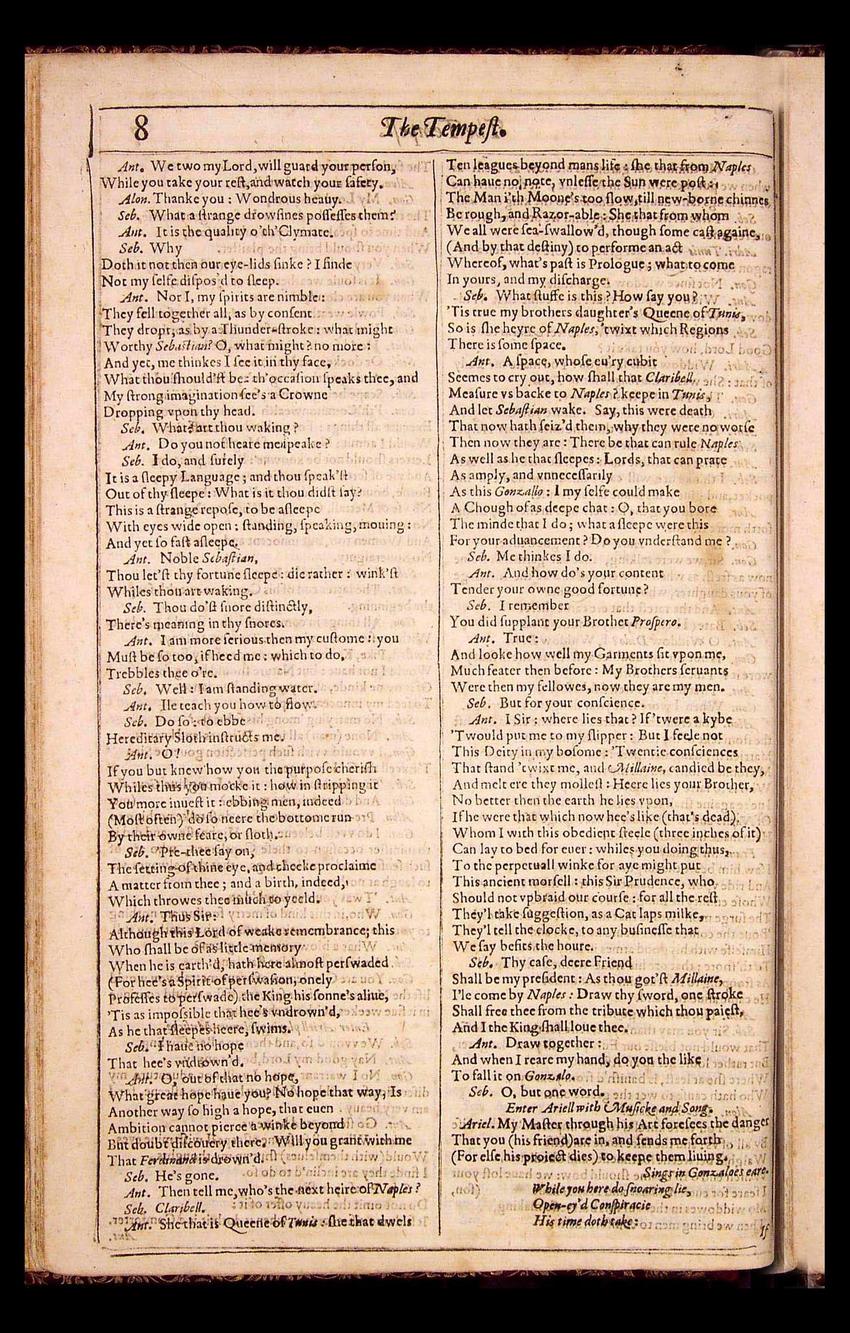 8
The Tempeſt.
Ant. We two my Lord, will guard your perſon,
While you take your reſt, and watch your ſafety.
Alon. Thanke you : Wondrous heauy.
Seb. What a ſtrange drowſines poſſeſſes them?
Ant. It is the quality o'th'Clymate.
Seb. Why
Doth it not then our eye-lids ſinke ? I finde
Not my ſelfe diſpos'd to ſleep.
Ant. Nor I, my ſpirits are nimble :
They fell together all, as by conſent
They dropt, as by a Thunder-ſtroke : what might
Worthy Sebaſtian? O, what might? no more :
And yet, me thinkes I ſee it in thy face,
What thou ſhould'ſt be: th'occaſion ſpeaks thee, and
My ſtrong imagination ſee's a Crowne
Dropping vpon thy head.
Seb. What? art thou waking ?
Ant. Do you not heare me ſpeake ?
Seb. I do, and ſurely
It is a ſleepy Language ; and thou ſpeak'ſt
Out of thy ſleepe : What is it thou didſt ſay?
This is a ſtrange repoſe, to be aſleepe
With eyes wide open : ſtanding, ſpeaking, mouing :
And yet ſo faſt aſleepe.
Ant. Noble Sebaſtian,
Thou let'ſt thy fortune ſleepe : die rather : wink'ſt
Whiles thou art waking.
Seb. Thou do'ſt ſnore diſtinctly,
There's meaning in thy ſnores.
Ant. I am more ſerious then my cuſtome : you
Muſt be ſo too, if heed me : which to do,
Trebbles thee o're.
Seb. Well : I am ſtanding water.
Ant. Ile teach you how to flow.
Seb. Do ſo : to ebbe
Hereditary Sloth inſtructs me.
Ant. O!
If you but knew how you the purpoſe cheriſh
Whiles thus you mocke it : how in ſtripping it
You more inueſt it : ebbing men, indeed
(Moſt often) do ſo neere the bottome run
By their owne feare, or ſloth.
Seb. 'Pre-thee ſay on,
The ſetting of thine eye, and cheeke proclaime
A matter from thee ; and a birth, indeed,
Which throwes thee much to yeeld.
Ant. Thus Sir:
Although this Lord of weake remembrance; this
Who ſhall be of as little memory
When he is earth'd, hath here almoſt perſwaded
(For hee's a Spirit of perſwaſion, onely
Profeſſes to perſwade) the King his ſonne's aliue,
'Tis as impoſsible that hee's vndrown'd,
As he that ſleepes heere, ſwims.
Seb. I haue no hope
That hee's vndrown'd.
Ant. O, out of that no hope,
What great hope haue you? No hope that way, Is
Another way ſo high a hope, that euen
Ambition cannot pierce a winke beyond
But doubt diſcouery there. Will you grant with me
That Ferdinand is drown'd.
Seb. He's gone.
Ant. Then tell me, who's the next heire of Naples ?
Seb. Claribell.
Ant. She that is Queene of Tunis : ſhe that dwels
Ten leagues beyond mans life : ſhe that from Naples
Can haue no note, vnleſſe the Sun were poſt :
The Man i'th Moone's too ſlow, till new-borne chinnes
Be rough, and Razor-able : She that from whom
We all were ſea-ſwallow'd, though ſome caſt againe,
(And by that deſtiny) to performe an act
Whereof, what's paſt is Prologue ; what to come
In yours, and my diſcharge.
Seb. What ſtuffe is this ? How ſay you ?
'Tis true my brothers daughter's Queene of Tunis,
So is ſhe heyre of Naples, 'twixt which Regions
There is ſome ſpace.
Ant. A ſpace, whoſe eu'ry cubit
Seemes to cry out, how ſhall that Claribell
Meaſure vs backe to Naples ? keepe in Tunis,
And let Sebaſtian wake. Say, this were death
That now hath ſeiz'd them, why they were no worſe
Then now they are : There be that can rule Naples
As well as he that ſleepes : Lords, that can prate
As amply, and vnneceſſarily
As this Gonzallo : I my ſelfe could make
A Chough of as deepe chat : O, that you bore
The minde that I do ; what a ſleepe were this
For your aduancement ? Do you vnderſtand me ?
Seb. Me thinkes I do.
Ant. And how do's your content
Tender your owne good fortune?
Seb. I remember
You did ſupplant your Brother Proſpero.
Ant. True :
And looke how well my Garments ſit vpon me,
Much feater then before : My Brothers ſeruants
Were then my fellowes, now they are my men.
Seb. But for your conſcience.
Ant. I Sir : where lies that? If 'twere a kybe
'Twould put me to my ſlipper : But I feele not
This Deity in my boſome : 'Twentie conſciences
That ſtand 'twixt me, and Millaine, candied be they,
And melt ere they molleſt : Heere lies your Brother,
No better then the earth he lies vpon,
If he were that which now hee's like (that's dead)
Whom I with this obedient ſteele (three inches of it)
Can lay to bed for euer : whiles you doing thus,
To the perpetuall winke for aye might put
This ancient morſell : this Sir Prudence, who
Should not vpbraid our courſe : for all the reſt
They'l take ſuggeſtion, as a Cat laps milke,
They'l tell the clocke, to any buſineſſe that
We ſay befits the houre.
Seb. Thy caſe, deere Friend
Shall be my preſident : As thou got'ſt Millaine,
I'le come by Naples : Draw thy ſword, one ſtroke
Shall free thee from the tribute which thou paieſt,
And I the King ſhall loue thee.
Ant. Draw together :
And when I reare my hand, do you the like
To fall it on Gonzalo.
Seb. O, but one word.
Enter Ariell with Muſicke and Song.
Ariel. My Maſter through his Art foreſees the danger
That you (his friend) are in, and ſends me forth
(For elſe his proiect dies) to keepe them liuing.
Sings in Gonzaloes eare.
While you here do ſnoaring lie,
Open-ey'd Conſpiracie
His time doth take:
If